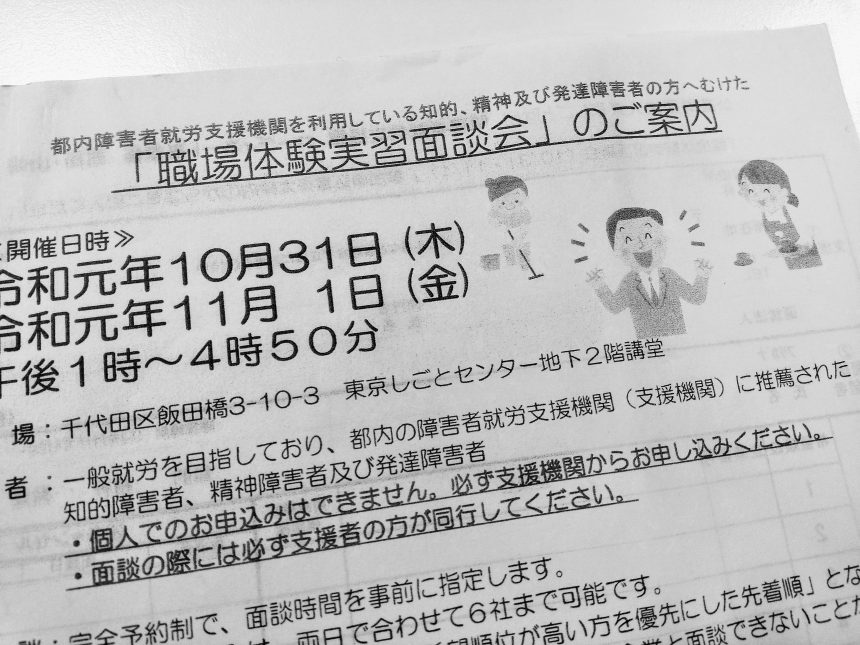 都内障害者就労支援機関を利用している知的、精神及び発達障害者の方へむけた
「職場体験実習面談会」のご案内
開催日時≫
令和元年10月31日(木)
令和元年11月 1日(金)
午後1時～4時50分
場:千代田区飯田橋3-10-3 東京しごとセンター地下2階講堂
者:一般就労を目指しており、都内の障害者就労支援機関(支援機関)に推薦された
知的障害者、精神障害者及び発達障害者
・個人でのお申込みはできません。必ず支援機関からお申し込みください。
・面談の際には必ず支援者の方が同行してください。
談:完全予約制で、面談時間を事前に指定します。
は、両日で合わせて6社まで可能です。
希望順位が高い方を優先にした先着順」とな
企業と面談できないことが